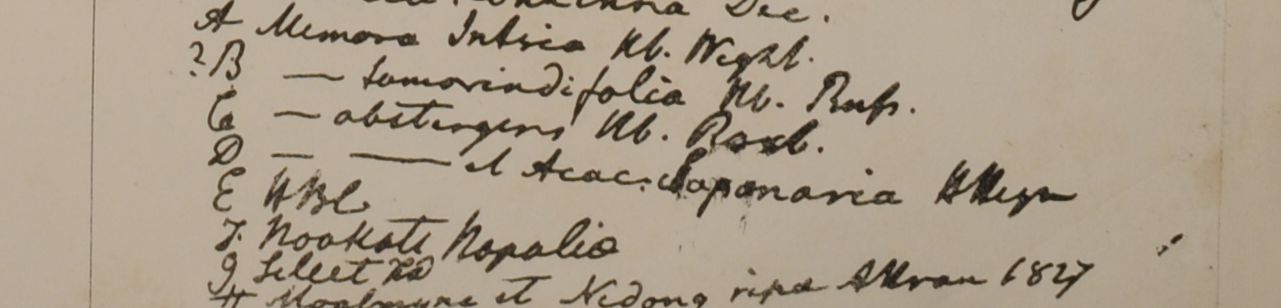 Dec.
A Mimosa Intsia Hb. Wight.
?B — tamarindifolia Hb. Russ.
C — abstergens Hb. Roxb.
D — — et Acac. Saponaria H Heyn
E HBC
F. Noakote Napalia
G Sillet
H Moalmyne et Nedong ripa Attran 1827